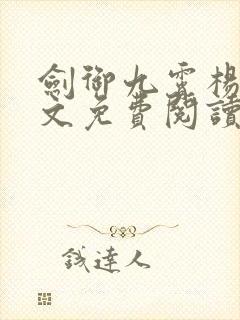 劍御九霄楊
文免費閱讀
錢達人